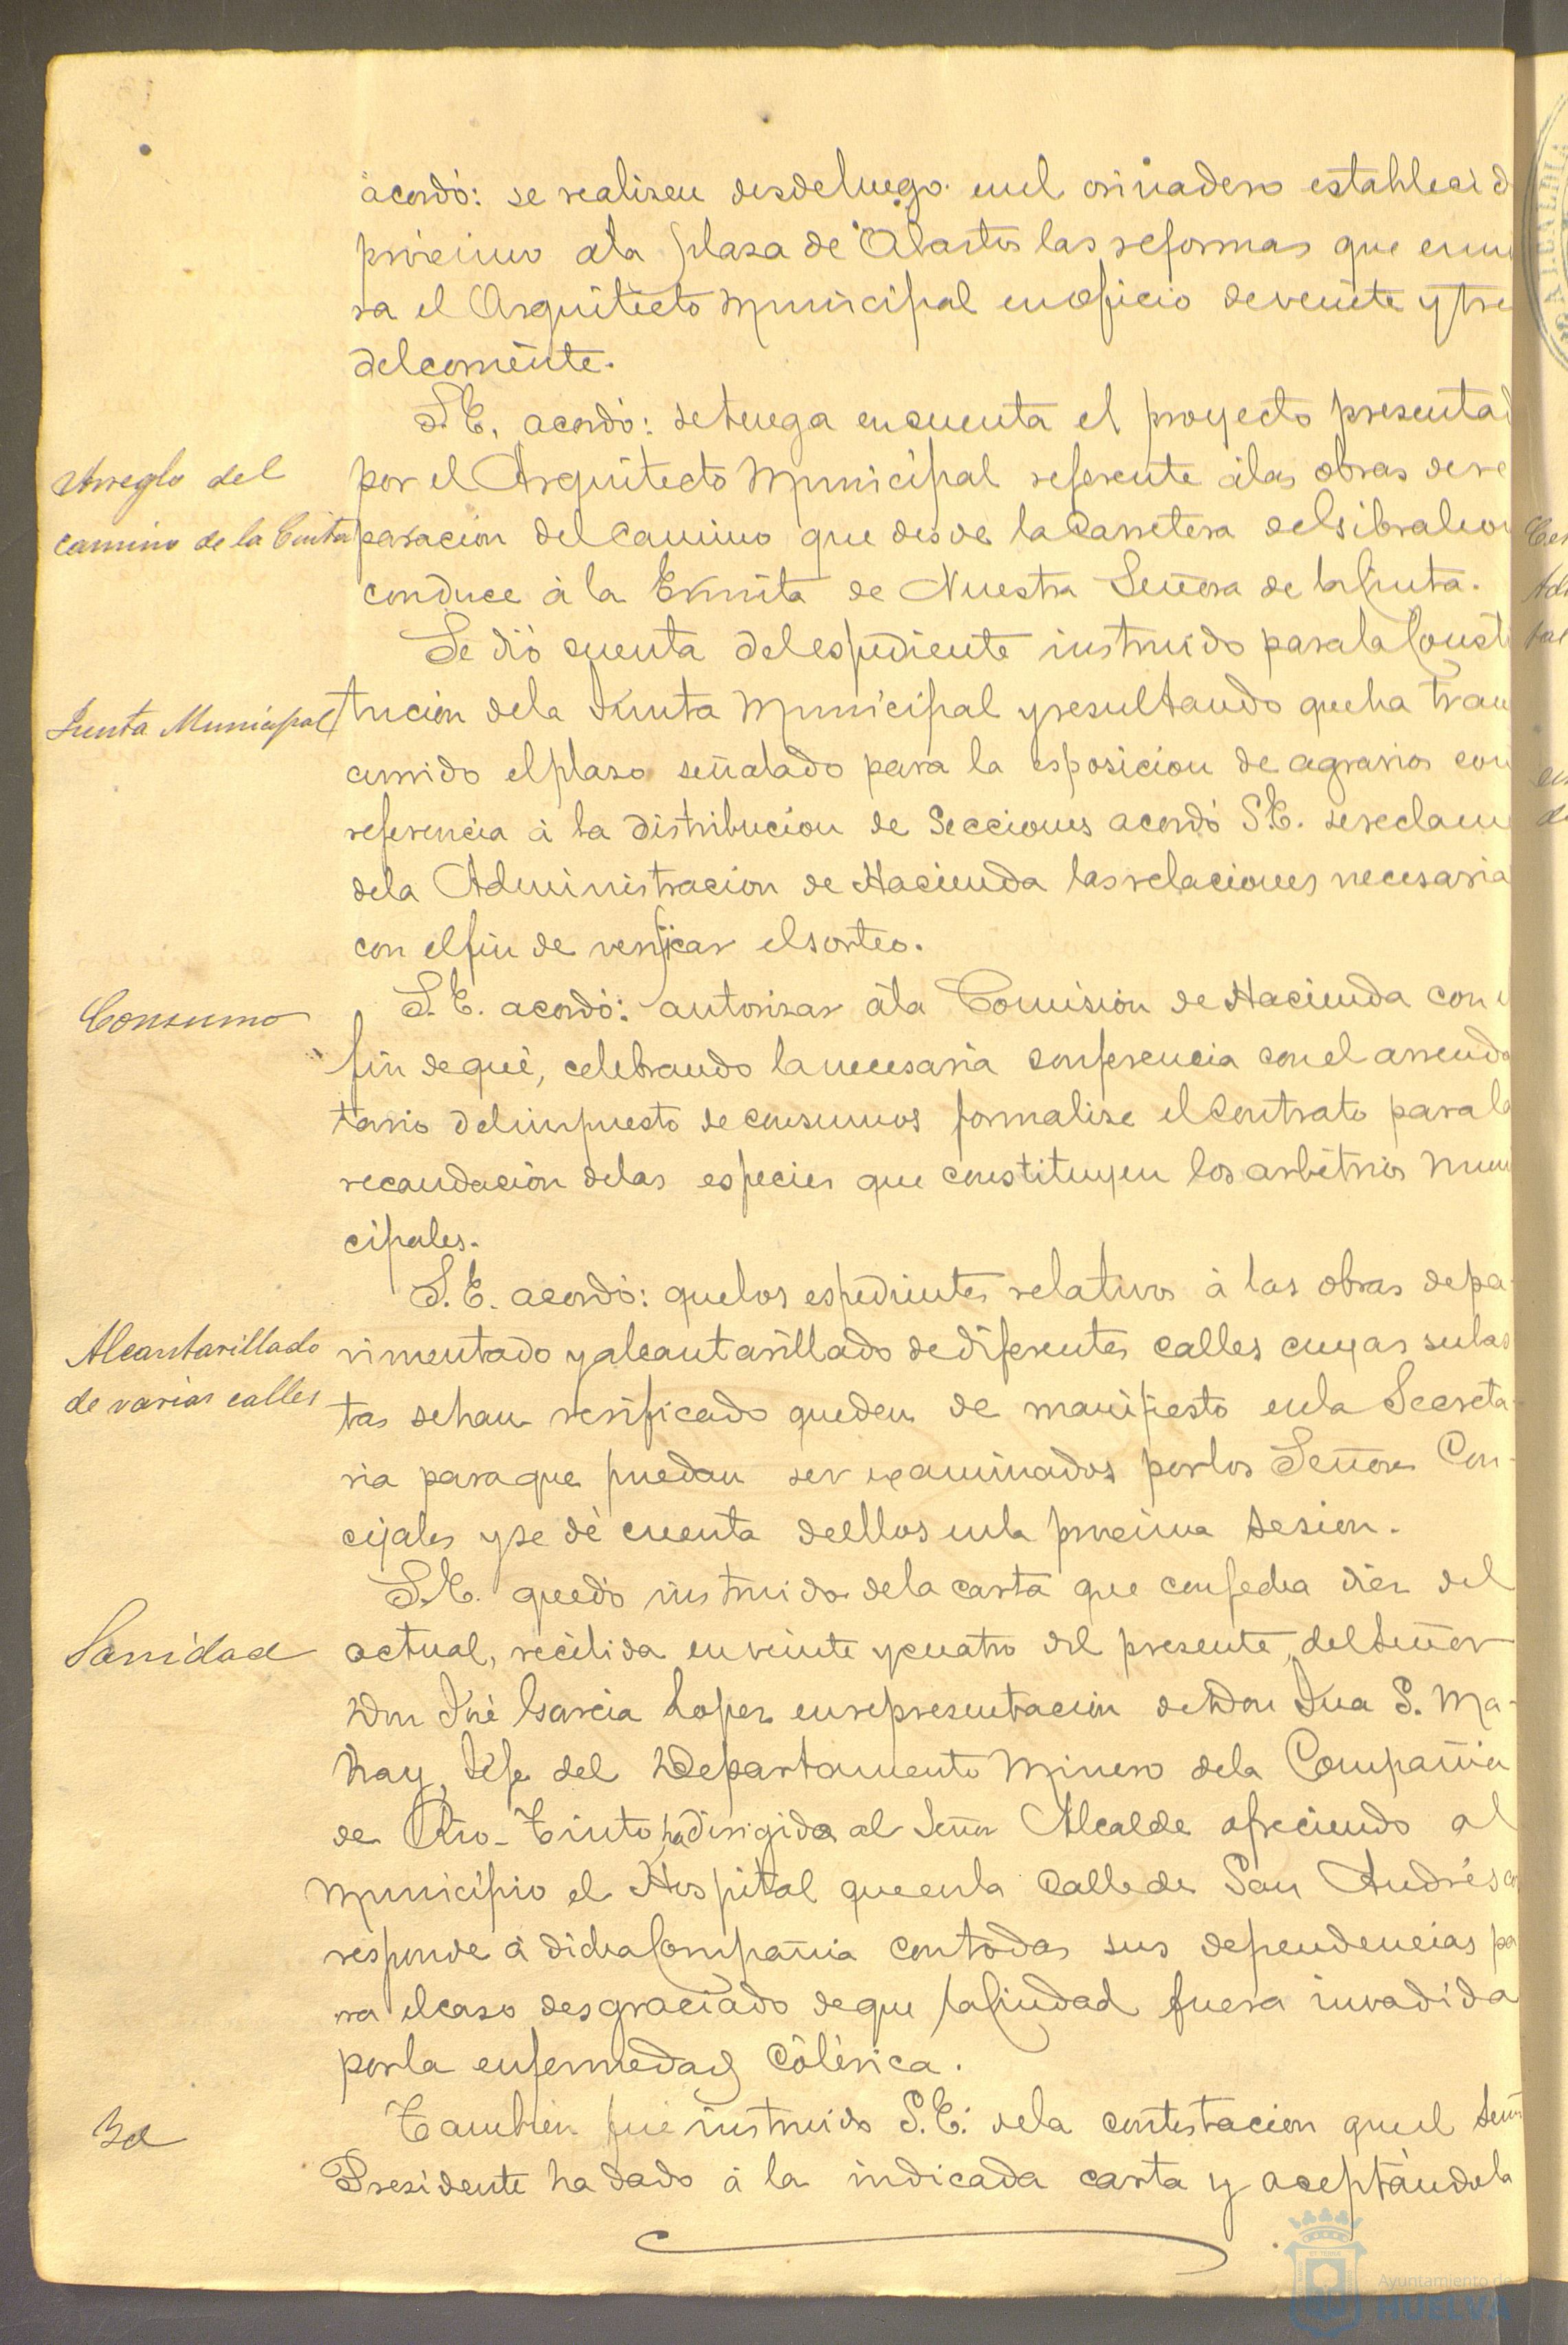 acordó: se realisen desdeluego enel orinadero establecid
próximo ala plaza de Abastos las reformas que enum
ra el Arquitecto Municipal enoficio deveinte y tre
delcorriente.
S.E. acordó: setenga encuenta el proyecto presentad
Arreglo del
por el Arquitecto Municipal referente álas obras dere
camino de la Cinta
paracion del camino que desde lacarretera deGibraleon
conduce á la Ermita de Nuestra Señora de laCinta.
Se dió cuenta delespediente instruido paralaConsti
Junta Municipal
tucion dela Junta Municipal yresultando queha trans
currido elplazo señalado para la esposicion de agravios con
referencia á la distribucion de Secciones acordó S.E. sereclame
dela Administracion de Hacienda lasrelaciones necesaria
con elfin de verificar elsorteo.
Consumo
S.E. acordó: autorisar ála Comisión de Hacienda con e
fin dequé, celebrando lanecesaria conferencia conel arrenda
tario delimpuesto deconsumos formalise elcontrato parala
recaudación delas especies que constituyen los arbitrios Muni
cipales.
S.E. acordó: quelos espedientes relativos á las obras depa-
Alcantarillado
vimentado yalcantarillado dediferentes calles cuyas subas
de varias calles
tas sehan verificado queden de manifiesto enla Secreta-
ria paraque puedan ser examinados porlos Señores Con-
cejales yse dé cuenta deellos enla proxima sesion.
S.E. quedó instruido dela carta que confecha diez del
Sanidad
actual, recibida enveinte ycuatro del presente, delSeñor
Don José Garcia Lopez enrepresentacion deDon Jua S. Ma-
hay, Jefe del Departamento Minero dela Compañia
de Rio-Tinto ha dirigido al Señor Alcalde ofreciendo al
Municipio el Hospital queenla Callede San Andrés co
responde á dichaCompañia contodas sus dependencias pa
ra elcaso desgraciado deque laCiudad fuera invadida
porla enfermedad Cólérica.
Id
Tambien fué instruido S.E. dela contestacion queel Señor
Presidente ha dado á la indicada carta y aceptándola
Ayuntamiento de
HUELVA